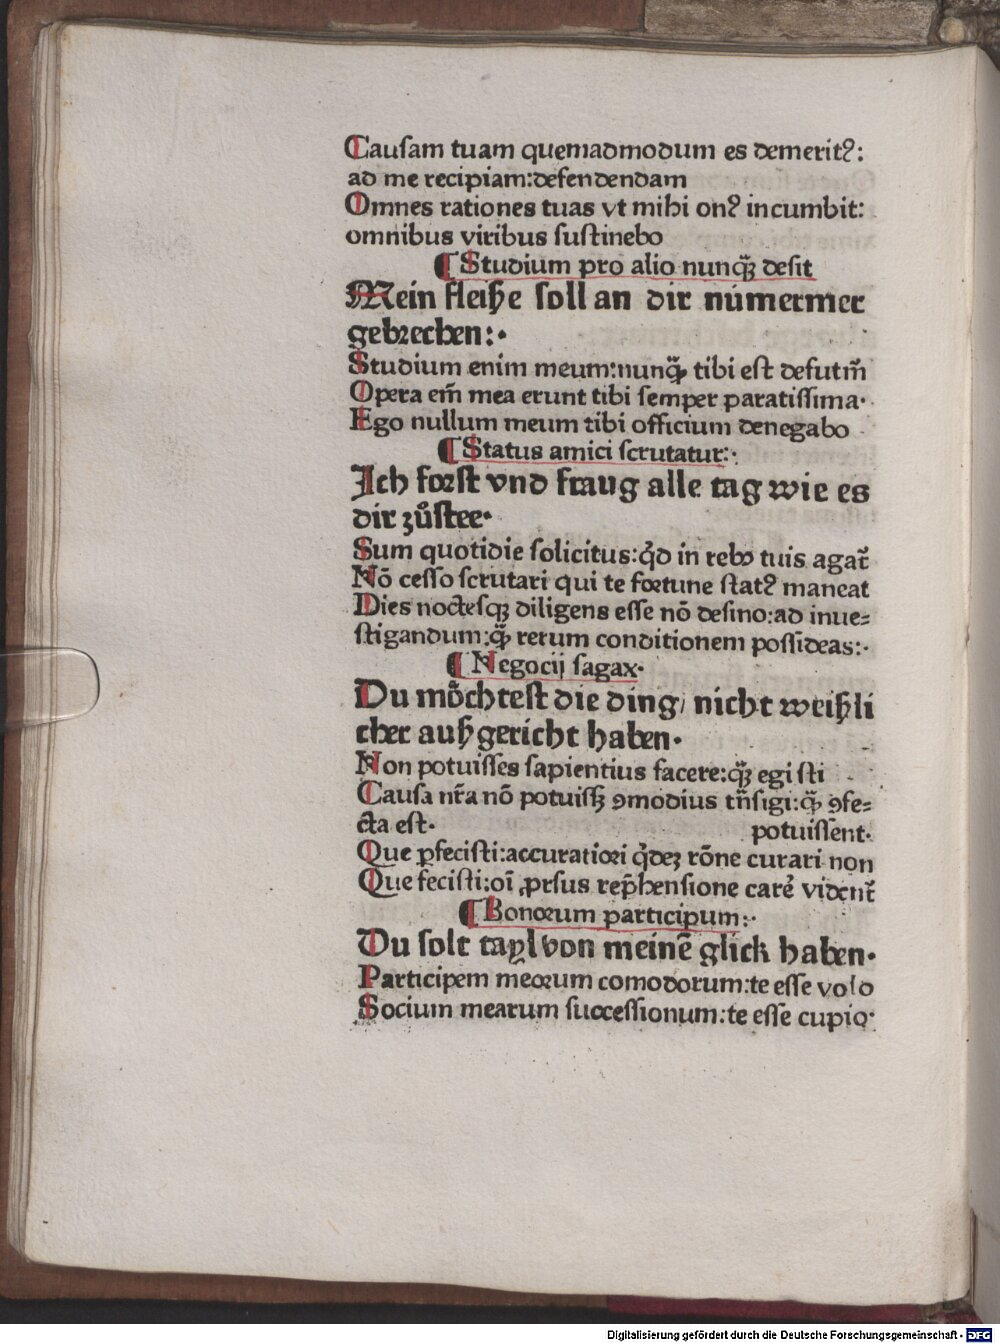 Causam tuam quemadmodum es demeritꝰ:
ad me recipiam:defendendam
Omnes rationes tuas vt mihi onꝰ incumbit:
omnibus viribus sustinebo
¶ Studium pro alio nunq̃ desit
Mein fleiße soll an dir nümermer
gebrechen:·
Studium enim meum:nunq̃ tibi est defutm̃
Opera em̃ mea erunt tibi semper paratissima·
Ego nullum meum tibi officium denegabo
¶ Status amici scrutatur:·
Ich forst vnd fraug alle tag wie es
dir zůstee·
Sum quotidie solicitus:q̇d in rebꝰ tuis agat᷑
Nō cesso scrutari qui te fortune statꝰ maneat
Dies noctesqꝫ diligens esse nō desino:ad inue⸗
stigandum:q̃ rerum conditionem possideas:·
¶ Negocij sagax·
Du mȯchtest die ding/ nicht weißli
cher außgericht haben·
Non potuisses sapientius facere:q̃ egisti
Causa nr̃a nō potuissꝫ ꝯmodius tñsigi:q̃ ꝯfe⸗
cta est· potuissent·
Que ꝑfecisti:accuratiori q̇dez rōne curari non
Que fecisti:oı̄ ꝓrsus rep̄hensione carē vident᷑
¶ Bonorum participum:·
Du solt tayl von meinē glick haben·
Participem meorum comodorum:te esse volo
Socium mearum successionum:te esse cupio·
Digitalisierung gefördert durch die Deutsche Forschungsgemeinschaft - DFG